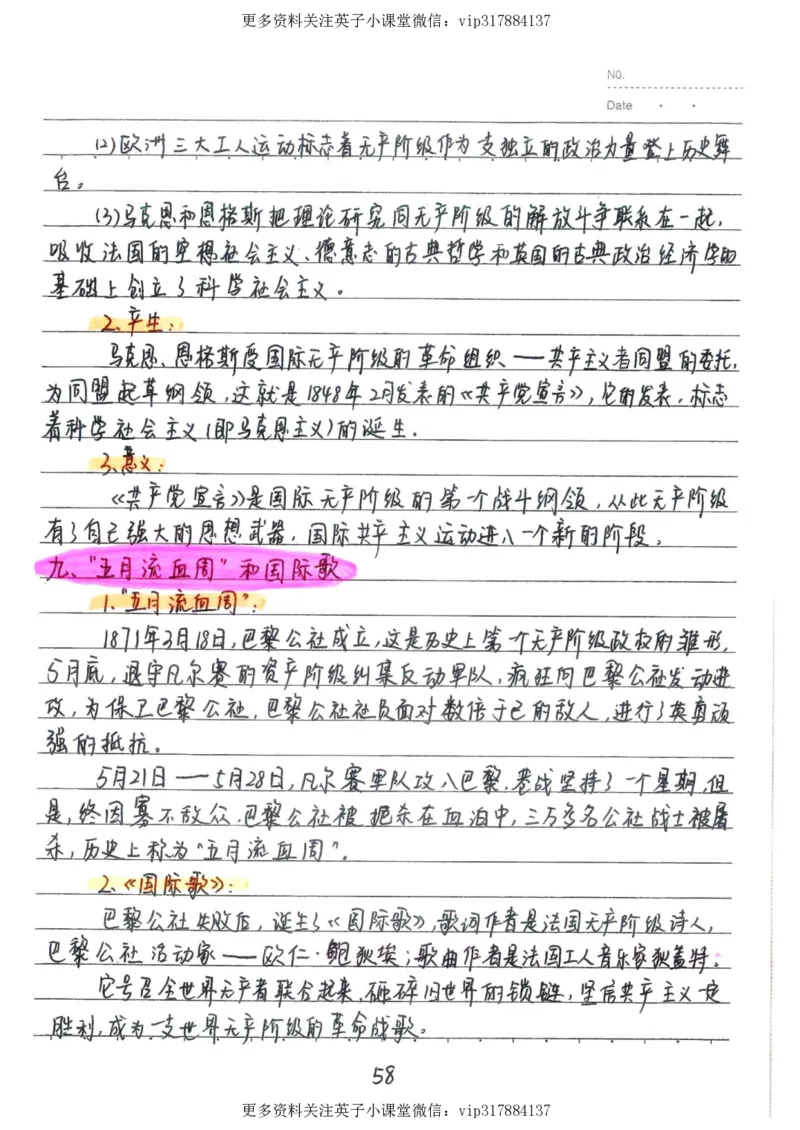 更多资料关注英子小课堂微信：vip317884137
NO.
Date
(2)欧洲三大工人运动标志着无产阶级作为一支独立的政治力量登上历史舞
台。
(3)马克思和恩格斯把理论研究同无产阶级的解放斗争联系在一起，
吸收法国的空想社会主义、德意志的古典哲学和英国的古典政治经济学的
基础上创立了科学社会主义。
2.产生：
马克思、恩格斯受国际无产阶级的革命组织——共产主义者同盟的委托，
为同盟起草纲领，这就是1848年2月发表的《共产党宣言》，它的发表，标志
着科学社会主义(即马克思主义)的诞生．
3.意义：
《共产党宣言》是国际无产阶级的第一个战斗纲领，从此无产阶级
有了自己强大的思想武器，国际共产主义运动进入一个新的阶段。
九、“五月流血周”和国际歌
1.“五月流血周”：
1871年3月18日，巴黎公社成立，这是历史上第一个无产阶级政权的雏形，
5月底，退守凡尔赛的资产阶级纠集反动军队，疯狂向巴黎公社发动进
攻，为保卫巴黎公社，巴黎公社社员面对数倍于己的敌人，进行了英勇顽
强的抵抗。
5月21日——5月28日，凡尔赛军队攻入巴黎，巷战坚持了一个星期，但
是，终因寡不敌众，巴黎公社被扼杀在血泊中，三万多名公社战士被屠
杀，历史上称为“五月流血周”．
2.《国际歌》：
巴黎公社失败后，诞生了《国际歌》，歌词作者是法国无产阶级诗人，
巴黎公社活动家——欧仁·鲍狄埃；歌曲作者是法国工人音乐家狄盖特。
它号召全世界无产者联合起来，砸碎旧世界的锁链，坚信共产主义一定
胜利，成为一支世界无产阶级的革命战歌。
58
更多资料关注英子小课堂微信：vip317884137